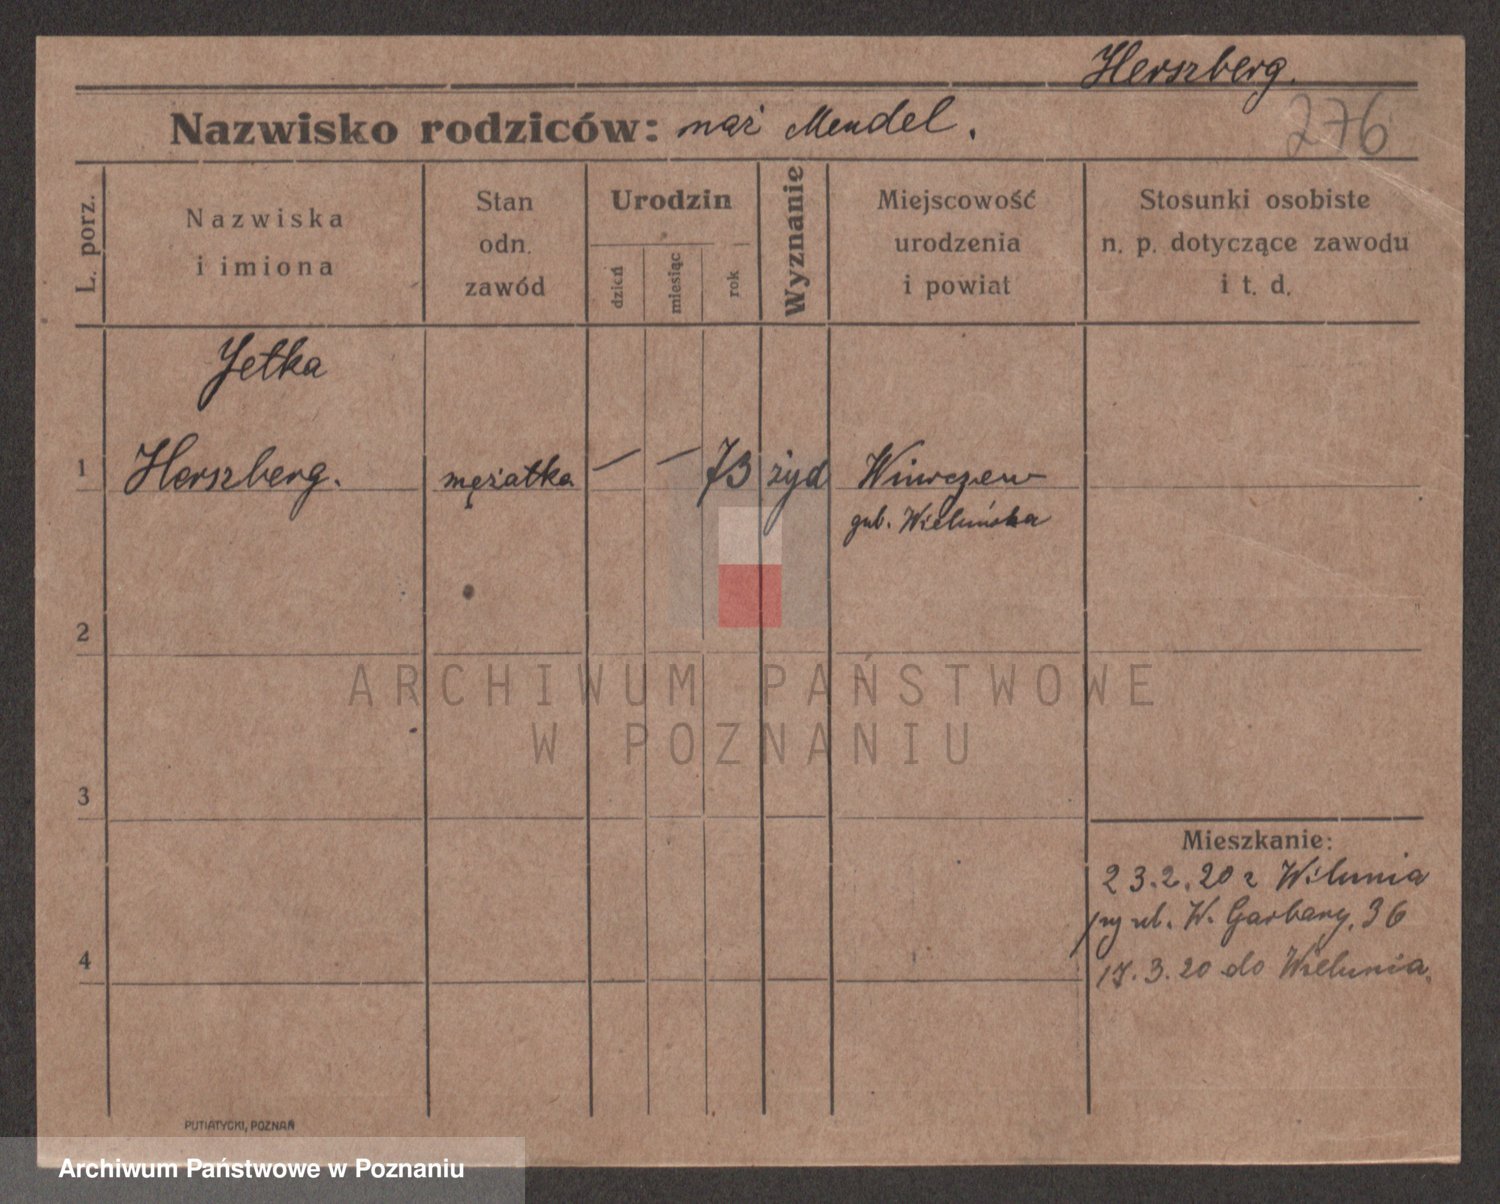 Herszberg.
276
Nazwisko rodziców: mąż Mendel.
L. porz.
Nazwiska
i imiona
Stan
odn.
zawód
Urodzin
dzień
miesiąc
rok
Wyznanie
Miejscowość
urodzenia
i powiat
Stosunki osobiste
n. p. dotyczące zawodu
i t. d.
Jetka
1 Herszberg. mężatka — — 73 żyd
gub. Wieluńska
2
ARCHIWUM PAŃSTWOWE
W POZNANIU
3
Mieszkanie:
23.2.20 z Wilunia
ul. W. Garbary, 36
4
17.3.20 do Wielunia.
PUTIATYCKI, POZNAŃ
Archiwum Państwowe w Poznaniu